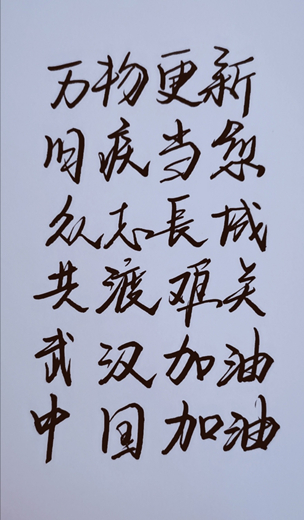 万物更新
旧疾当愈
众志長城
共渡难关
武汉加油
中国加油